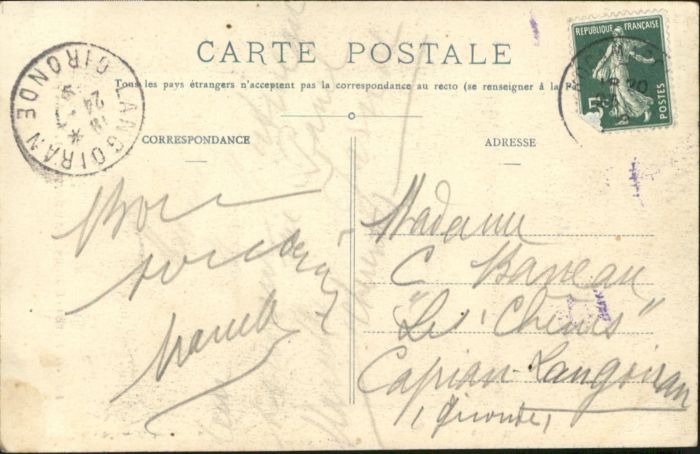 CARTE POSTALE
Tous les pays étrangers n'acceptent pas la correspondance au recto (se renseigner à la
CORRESPONDANCE
ADRESSE
REPUBLIQUE FRANÇAISE
POSTES
5
LANGOIRAN
GIRONDE
24
Bon
souvenir
Madame
C
"Les Chênes"
Capian-Langoiran
(Gironde)